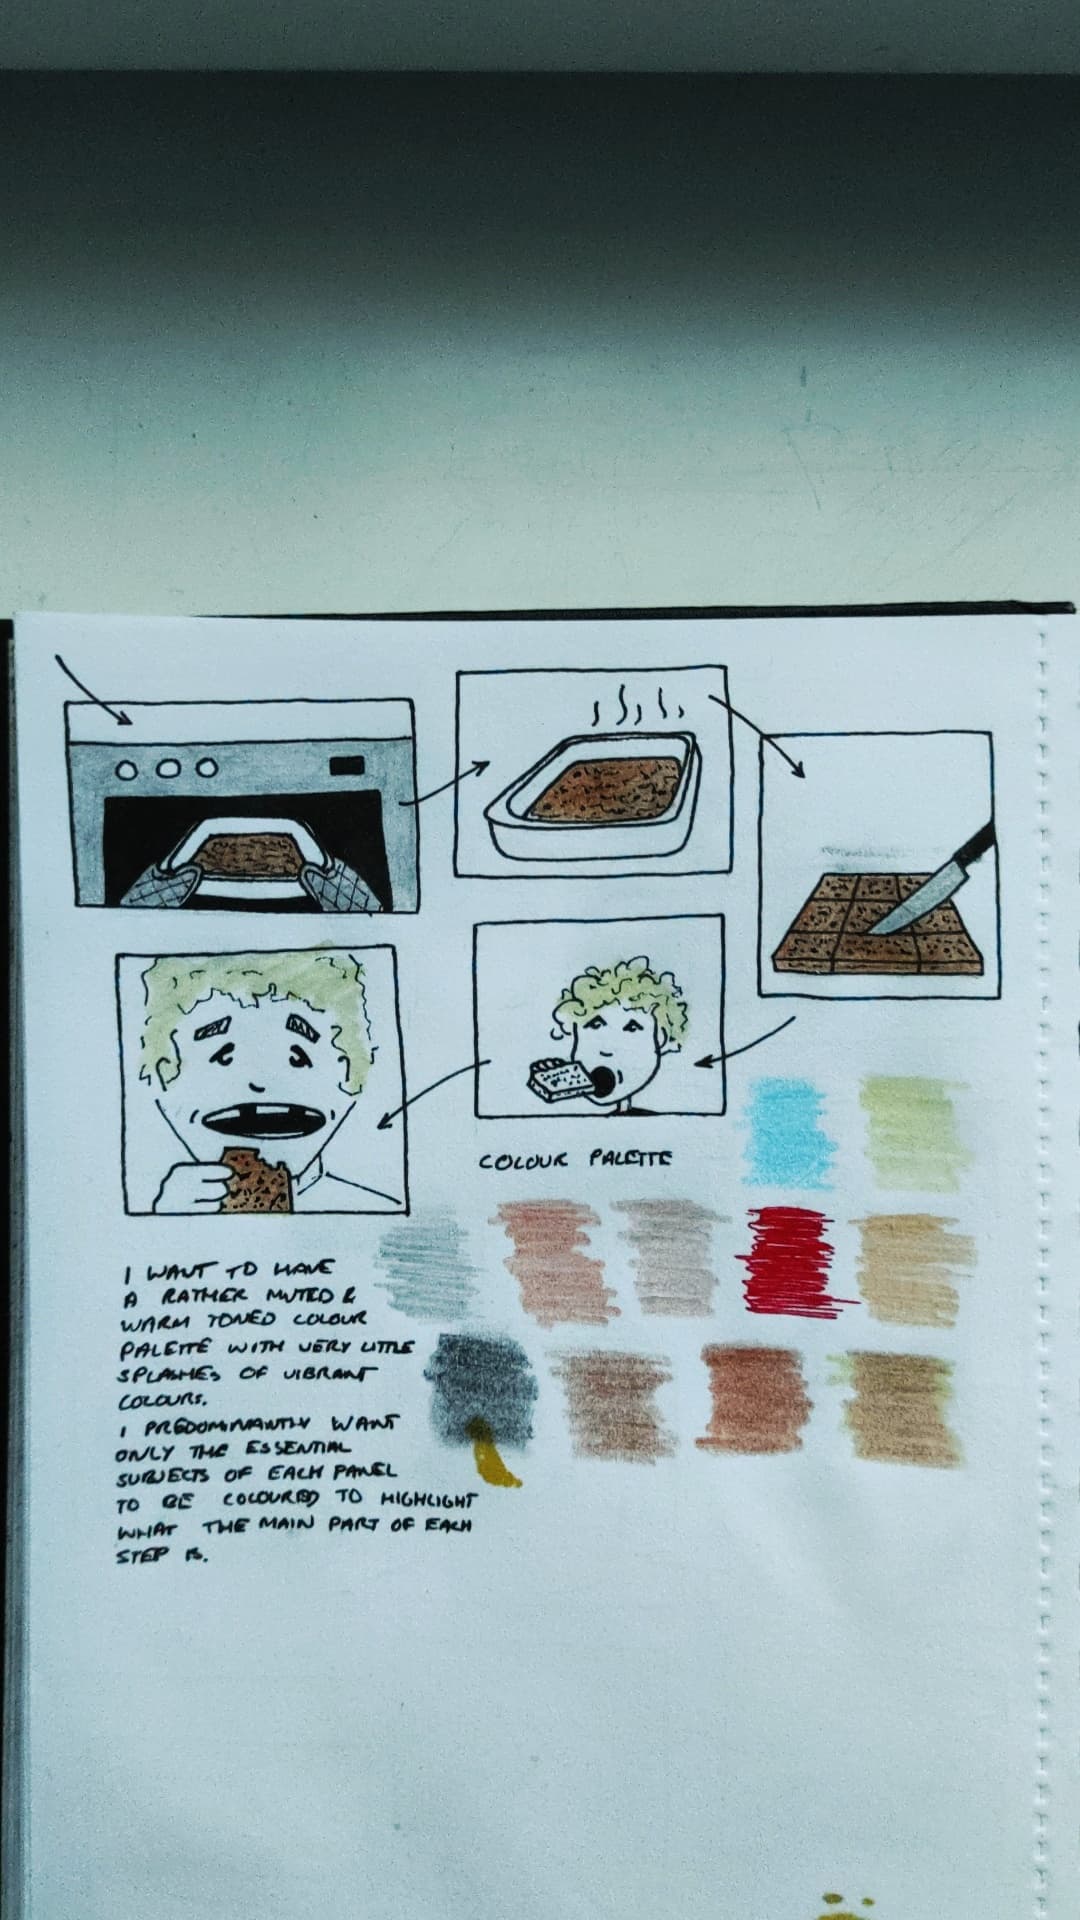 COLOUR PALETTE
I WANT TO HAVE
A RATHER MUTED &
WARM TONED COLOUR
PALETTE WITH VERY LITTLE
SPLASHES OF VIBRANT
COLOURS.
I PREDOMINANTLY WANT
ONLY THE ESSENTIAL
SUBJECTS OF EACH PANEL
TO BE COLOURED TO HIGHLIGHT
WHAT THE MAIN PART OF EACH
STEP IS.